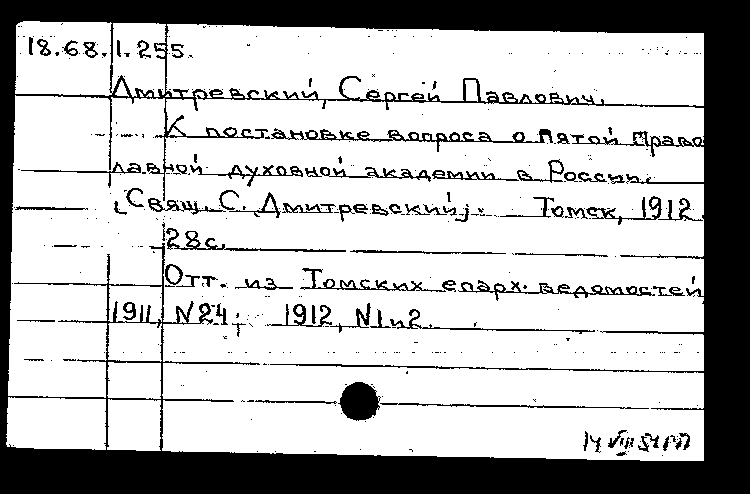 18.68.1.255.
Дмитревский, Сергей Павлович.
К постановке вопроса о пятой право
лавной духовной академии в России.
[Свящ. С. Дмитревский]. Томск, 1912.
28с.
Отт. из Томских епарх. ведомостей,
1911, N24; 1912, N1и2.
14 VIII 54